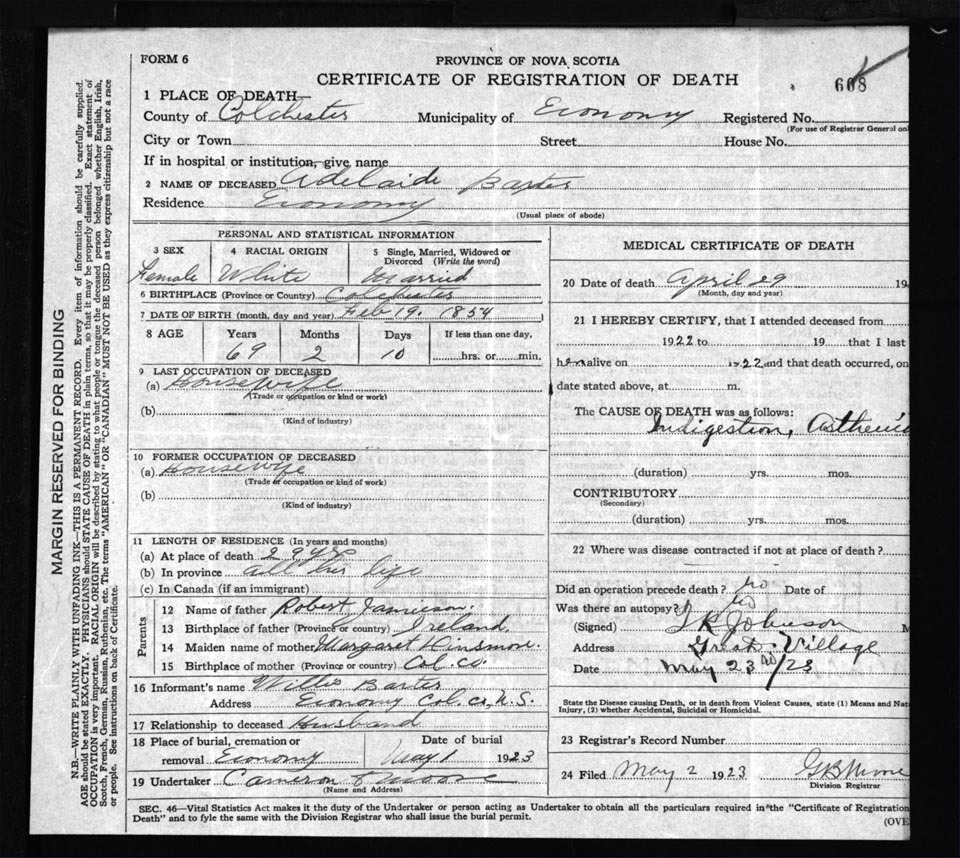 FORM 6
PROVINCE OF NOVA SCOTIA
CERTIFICATE OF REGISTRATION OF DEATH
608
1 PLACE OF DEATH—
County of Colchester Municipality of Economy Registered No.
(For use of Registrar General on
City or Town Street House No.
If in hospital or institution, give name
2 NAME OF DECEASED Adelaide Barter
Residence Economy
(Usual place of abode)
PERSONAL AND STATISTICAL INFORMATION
3 SEX 4 RACIAL ORIGIN 5 Single, Married, Widowed or Divorced (Write the word)
Female White Married
6 BIRTHPLACE (Province or Country) Colchester
7 DATE OF BIRTH (month, day and year) Feb 19. 1854
8 AGE Years Months Days If less than one day,
69 2 10 hrs. or min.
9 LAST OCCUPATION OF DECEASED
(a) Housewife
(Trade or occupation or kind or work)
(b)
(Kind of industry)
10 FORMER OCCUPATION OF DECEASED
(a) Housewife
(Trade or occupation or kind of work)
(b)
(Kind of industry)
11 LENGTH OF RESIDENCE (In years and months)
(a) At place of death 29 yrs
(b) In province all her life
(c) In Canada (if an immigrant)
Parents
12 Name of father Robert Jamieson.
13 Birthplace of father (Province or country) Ireland.
14 Maiden name of mother Margaret Kinsmore.
15 Birthplace of mother (Province or country) Col. co.
16 Informant's name Barter
Address Economy Col. co, N.S.
17 Relationship to deceased Husband
18 Place of burial, cremation or Date of burial
removal Economy May 1 1923
19 Undertaker Cameron
(Name and Address)
MEDICAL CERTIFICATE OF DEATH
20 Date of death April 29 19
(Month, day and year)
21 I HEREBY CERTIFY, that I attended deceased from
1922 to 19 that I last
her alive on 1922 and that death occurred, on
date stated above, at m.
The CAUSE OF DEATH was as follows:
Indigestion, Asthenia
(duration) yrs. mos.
CONTRIBUTORY
(Secondary)
(duration) yrs. mos.
22 Where was disease contracted if not at place of death?
Did an operation precede death? no Date of
Was there an autopsy? no
(Signed) Johnson M
Address Great Village
Date May 23rd/23
State the Disease causing Death, or in death from Violent Causes, state (1) Means and Nat
Injury, (2) whether Accidental, Suicidal or Homicidal.
23 Registrar's Record Number
24 Filed May 2 1923
Division Registrar
SEC. 46—Vital Statistics Act makes it the duty of the Undertaker or person acting as Undertaker to obtain all the particulars required in the "Certificate of Registration
Death" and to fyle the same with the Division Registrar who shall issue the burial permit.
(OVE
MARGIN RESERVED FOR BINDING
N.B.—WRITE PLAINLY WITH UNFADING INK—THIS IS A PERMANENT RECORD. Every item of information should be carefully supplied.
AGE should be stated EXACTLY. PHYSICIANS should STATE CAUSE OF DEATH in plain terms, so that it may be properly classified. Exact statement of
OCCUPATION is very important. RACIAL ORIGIN will be described by stating to what people or tongue the deceased person belonged whether English, Irish,
Scotch, French, German, Russian, Ruthenian, etc. The terms "AMERICAN" OR "CANADIAN" MUST NOT BE USED as they express citizenship but not a race
or people. See instructions on back of Certificate.